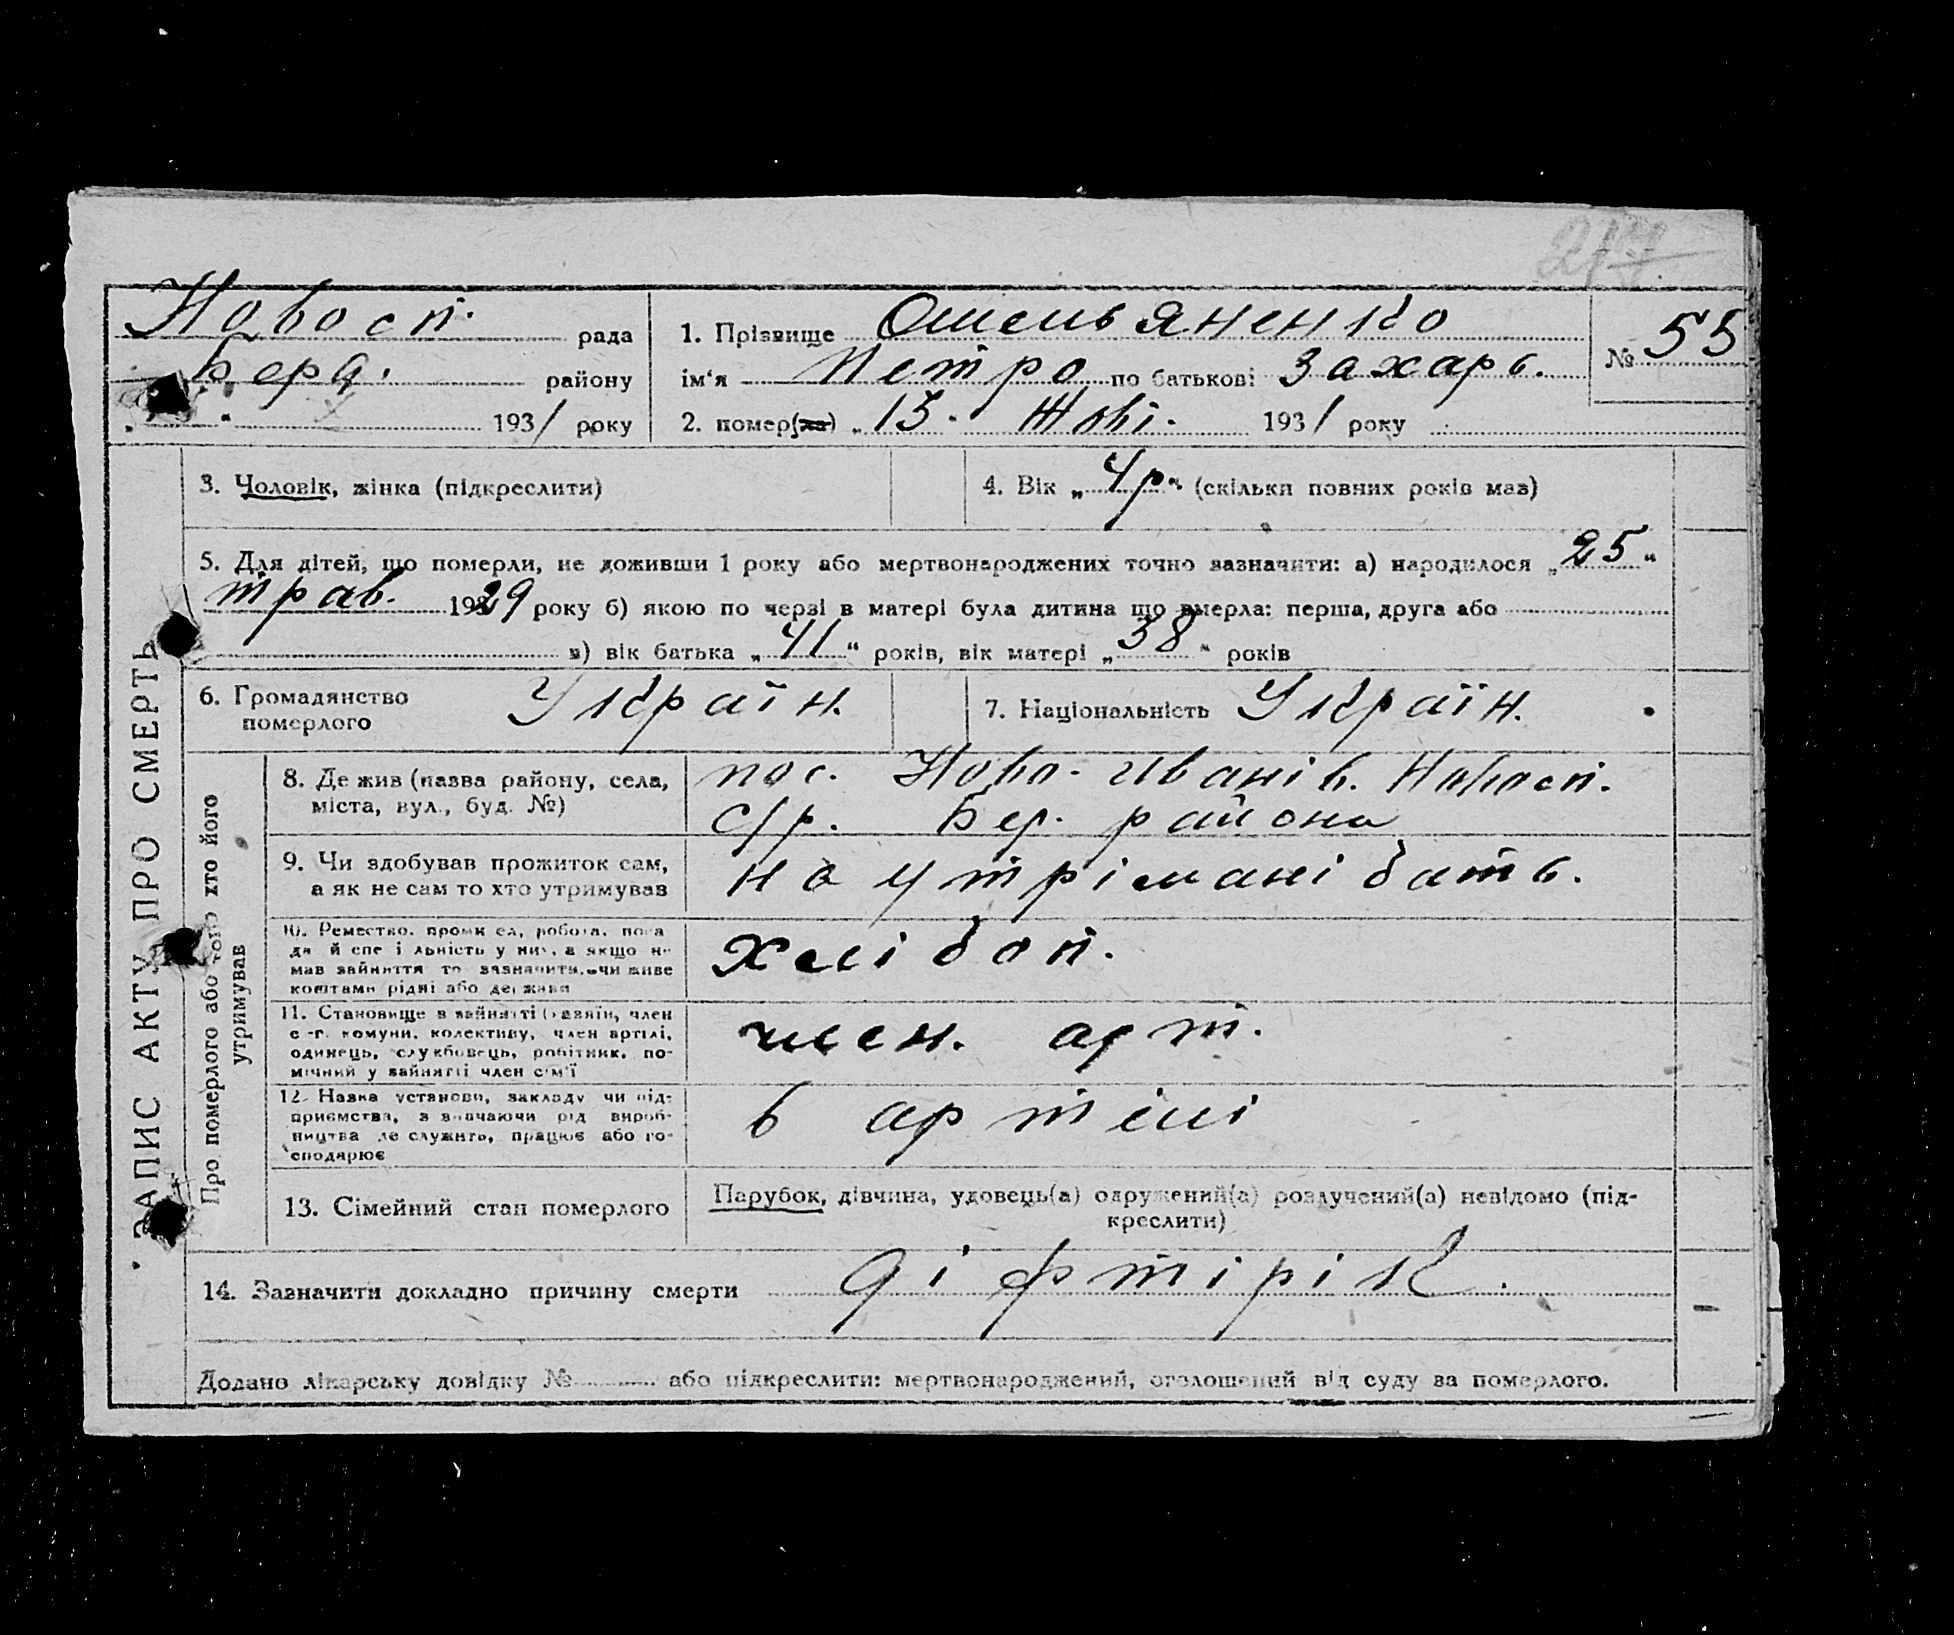 217
Новосп. рада
Берд. району
" 1931 року
1. Прізвище Омельяненко
ім'я Петро по батькові Захарь.
№ 55
2. помер(ла) „13" Жовт. 1931 року
3. Чоловік, жінка (підкреслити)
4. Вік „4р." (скільки повних років мав)
5. Для дітей, що померли, не доживши 1 року або мертвонароджених точно зазначити: а) народилося „25"
трав. 1929 року б) якою по черзі в матері була дитина що вмерла: перша, друга або
в) вік батька „41" років, вік матері „38" років
6. Громадянство
померлого
Україн.
7. Національність Україн.
ЗАПИС АКТУ ПРО СМЕРТЬ
Про померлого або того хто його
утримував
8. Де жив (назва району, села,
міста, вул., буд. №)
пос. Ново-Иванів. Новосп.
с/р. Бер. района
9. Чи здобував прожиток сам,
а як не сам то хто утримував
на утрімані бать.
10. Ремество, промисел, робота, поса
да й спеціяльність у них, а якщо не
мав зайняття то зазначити, чи живе
коштами рідні або держави
хлібоп.
11. Становище в зайнятті (хазяїн, член
с-г. комуни, колективу, член артілі,
одинець, службовець, робітник, по-
мічний у зайнятті член сім'ї
член. арт.
12. Назва установи, закладу чи під-
приємства, зазначаючи рід вироб-
ництва де служить, працює або го-
сподарює
в артілі
13. Сімейний стан померлого
Парубок, дівчина, удовець(а) одружений(а) розлучений(а) невідомо (під-
креслити)
14. Зазначити докладно причину смерти діфтірік.
Додано лікарську довідку № або підкреслити: мертвонароджений, оголошений від суду за померлого.